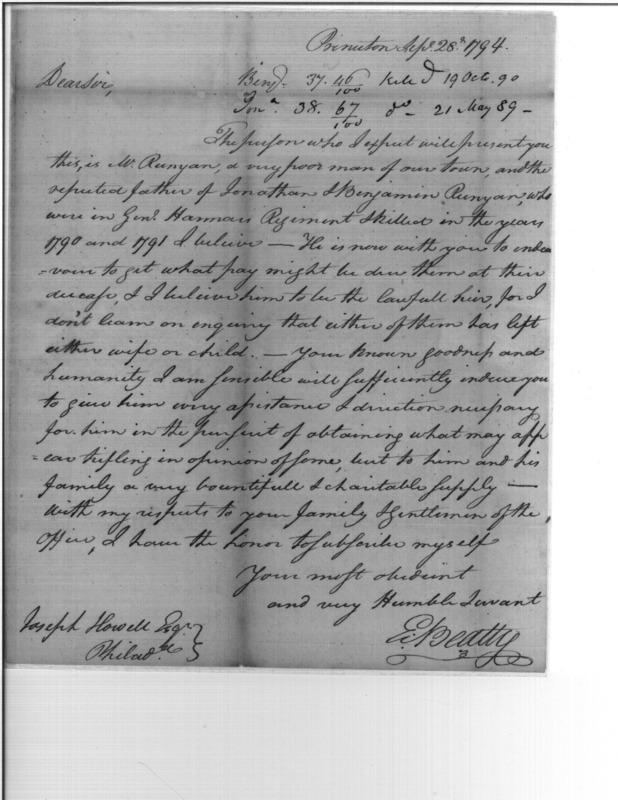 Princeton Sepr. 28th 1794.
Dear Sir,
Benjn. 37. 46/100 Kill'd 19 Octb. 90
Jona. 38. 67/100 do - 21 May 89 -
The person who I expect will present you
this, is Mr. Runyan, a very poor man of our town, and the
reputed father of Jonathan & Benjamin Runyan who
were in Genl. Harmars Regiment & killed in the years
1790 and 1791 I believe — He is now with you to endea
=vour to get what pay might be due them at their
decease, & I believe him to be the lawfull heir, for I
don't learn on enquiry that either of them has left
either wife or child. — Your known goodness and
humanity I am sensible will sufficiently induce you
to give him every assistance & direction necessary
for him in the pursuit of obtaining what may app
=ear trifling in opinion of some, but to him and his
family a very bountifull & charitable supply —
With my respects to your family & Gentlemen of the
Office, I have the honor to subscribe myself
Your most obedient
and very Humble Servant
E. Beatty
Joseph Howell Esqr.
Philada.